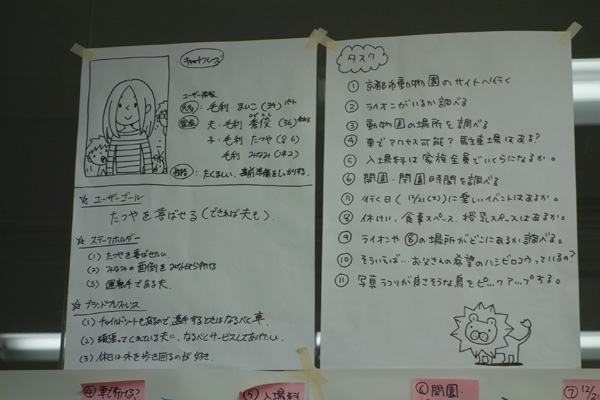 キャッチフレーズ
ユーザー情報
氏名: 毛利 まいこ (34)
家族: 夫・毛利 (36)
子・毛利 たつや (♂6)
毛利 みなみ (♀2)
性格: たくましい、事前準備をしっかりする。
☆ ユーザーゴール
たつやを喜ばせる(できれば夫も)
☆ ステークホルダー
(1) たつやを喜ばせたい
(2) みなみの面倒をみながら
(3) 運転手である夫。
☆ ブランドプレファレンス
(1) チャイルドシートもあるので、遠出するときはなるべく車。
(2) 頑張ってくれている夫に、なるべくサービスしてあげたい。
(3) 休日は外を歩き回るのが好き。
タスク
① 京都市動物園のサイトへ行く
② ライオンがいるか調べる
③ 動物園の場所を調べる
④ 車でアクセス可能? 駐車場はある?
⑤ 入場料は家族全員でいくらになるか。
⑥ 開園・閉園時間を調べる
⑦ 行く日(12/21(  ))に楽しいイベントはあるか。
⑧ 休けい、食事スペース、授乳スペースはあるか。
⑨ ライオンや⑧の場所がどこにあるか調べる。
⑩ そういえば…お父さんの希望のハシビロコウっているの?
⑪ 写真うつりが良さそうな鳥をピックアップする。
④ 車で行ける?
⑤ 入場料
⑥ 開園・
⑦ 12/2